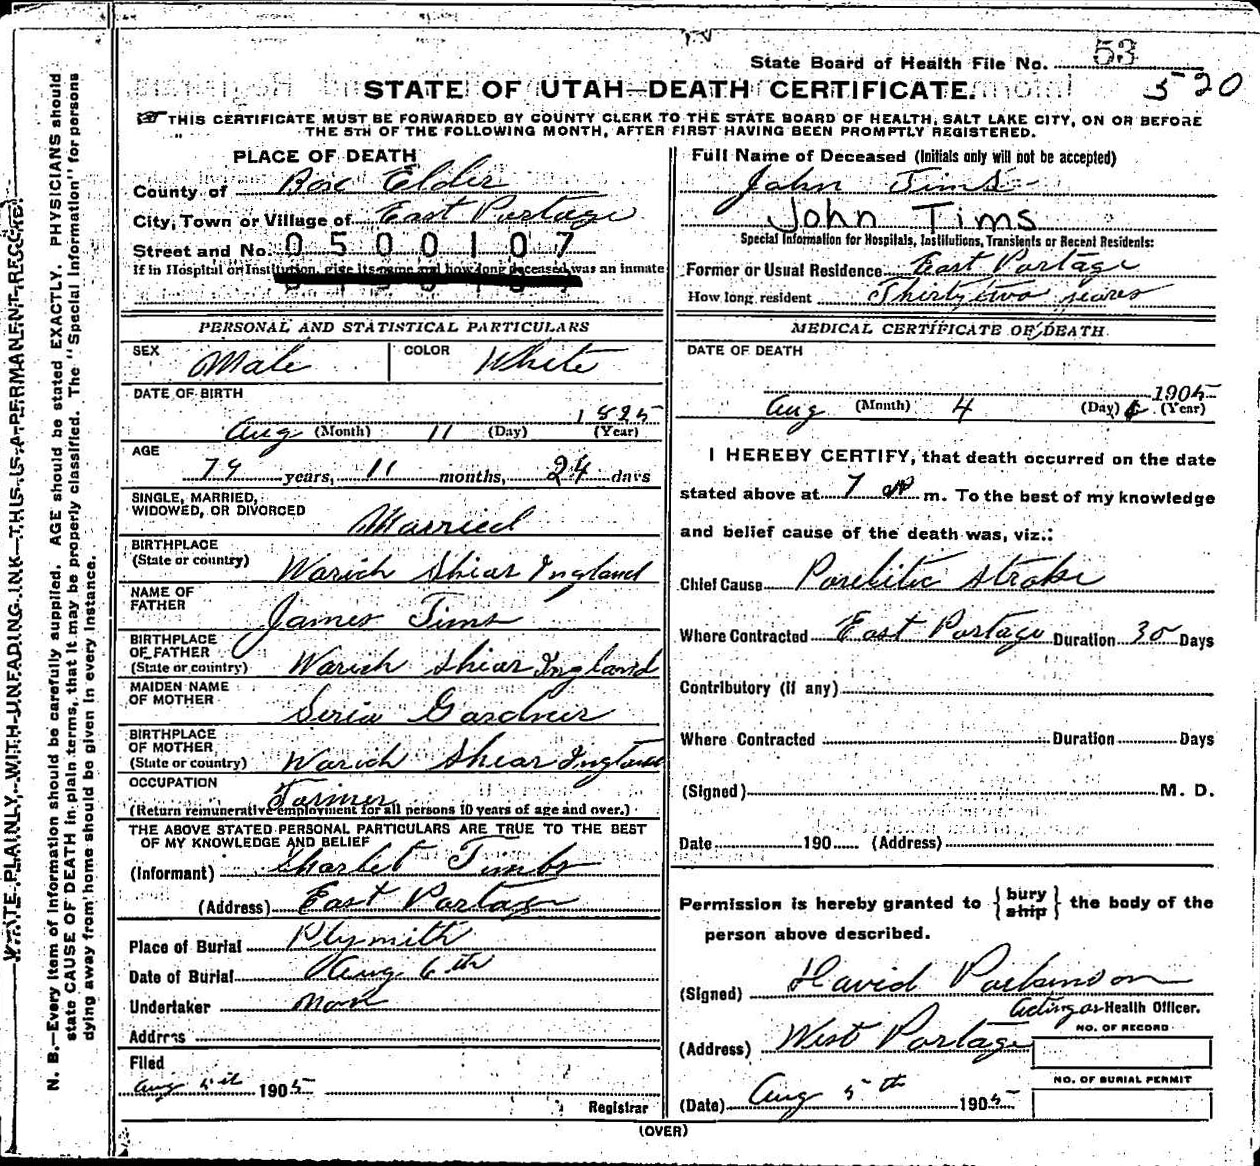 State Board of Health File No. 53
520
STATE OF UTAH—DEATH CERTIFICATE.
THIS CERTIFICATE MUST BE FORWARDED BY COUNTY CLERK TO THE STATE BOARD OF HEALTH, SALT LAKE CITY, ON OR BEFORE
THE 5TH OF THE FOLLOWING MONTH, AFTER FIRST HAVING BEEN PROMPTLY REGISTERED.
PLACE OF DEATH
County of Box Elder
City, Town or Village of East Portage
Street and No. 0500107
If in Hospital or Institution, give its name and how long deceased was an inmate
PERSONAL AND STATISTICAL PARTICULARS
SEX Male COLOR White
DATE OF BIRTH
Aug (Month) 11 (Day) 1825 (Year)
AGE
79 years, 11 months, 24 days
SINGLE, MARRIED,
WIDOWED, OR DIVORCED Married
BIRTHPLACE
(State or country) Warich Shiar Ingland
NAME OF
FATHER James Tims
BIRTHPLACE
OF FATHER
(State or country) Warich Shiar Ingland
MAIDEN NAME
OF MOTHER Seria Gardner
BIRTHPLACE
OF MOTHER
(State or country) Warich Shear Ingland
OCCUPATION Farmer
(Return remunerative employment for all persons 10 years of age and over.)
THE ABOVE STATED PERSONAL PARTICULARS ARE TRUE TO THE BEST
OF MY KNOWLEDGE AND BELIEF
(Informant) Sharlet Timbs
(Address) East Portage
Place of Burial Plymith
Date of Burial Aug 6th
Undertaker Non
Address
Filed
Aug 5th 1905
Registrar
Full Name of Deceased (Initials only will not be accepted)
John Tims
John Tims
Special Information for Hospitals, Institutions, Transients or Recent Residents:
Former or Usual Residence East Portage
How long resident Thirty two yeares
MEDICAL CERTIFICATE OF DEATH
DATE OF DEATH
Aug (Month) 4 (Day) 1905 (Year)
I HEREBY CERTIFY, that death occurred on the date
stated above at 7 m. To the best of my knowledge
and belief cause of the death was, viz.:
Chief Cause Parelitic stroke
Where Contracted East Portage Duration 30 Days
Contributory (if any)
Where Contracted Duration Days
(Signed) M. D.
Date 190 (Address)
Permission is hereby granted to { bury ship } the body of the
person above described.
(Signed) David Parkinson
Acting as Health Officer.
(Address) West Portage
NO. OF RECORD
NO. OF BURIAL PERMIT
(Date) Aug 5th 1905
(OVER)
WRITE PLAINLY WITH UNFADING INK—THIS IS A PERMANENT RECORD
N. B.—Every item of information should be carefully supplied. AGE should be stated EXACTLY. PHYSICIANS should
state CAUSE OF DEATH in plain terms, that it may be properly classified. The "Special Information" for persons
dying away from home should be given in every instance.